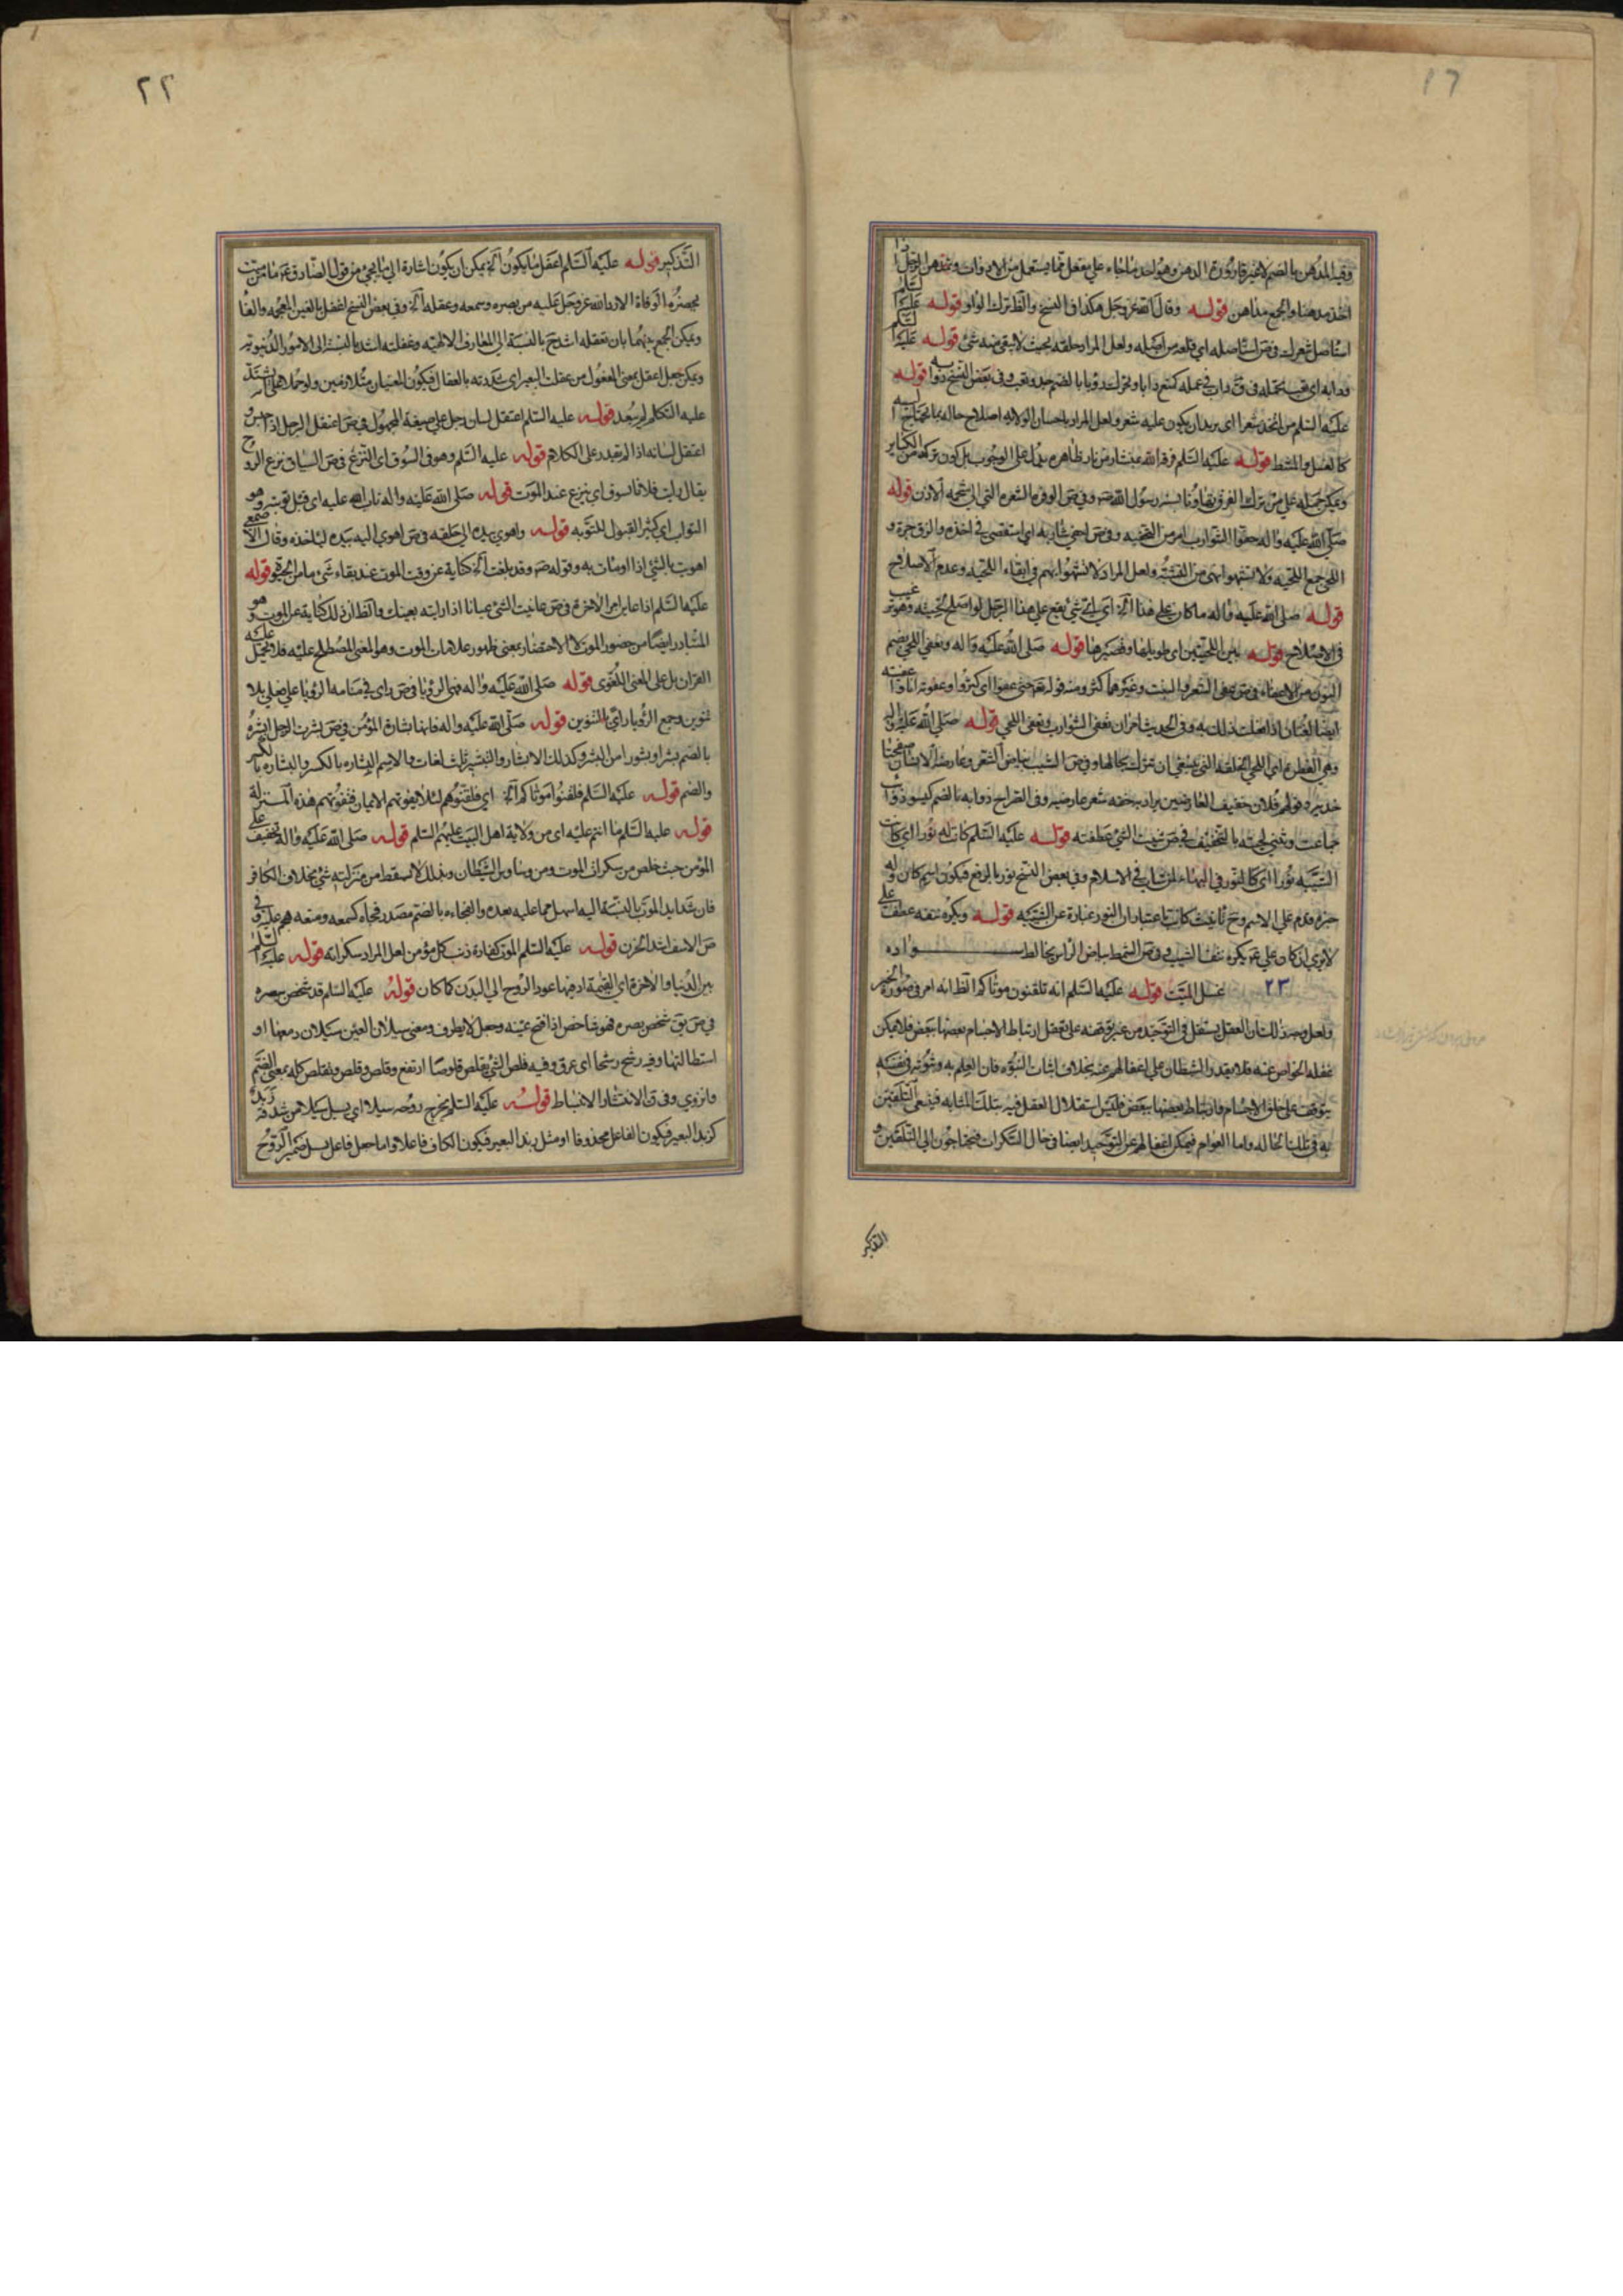 ١٦
وفيه المدهن بالضم لا غير قارورة الدهن وهو احد ما جاء على مفعل مما يستعمل من الادوات وتمدهن الرجل اذا
اخذ مدهنا والجمع مداهن قوله وقال الله عز وجل هكذا في النسخ والظ ترك الواو قوله عليه السلم
استاصل شعرك في ص استاصله اي قلعه من اصله ولعل المراد حلقه بحيث لا يبقى منه شئ قوله عليه السلم
ودابه اي
عليه السلم من اتخذ شعرا اي يريد ان يكون عليه شعر ولعل المراد باحسان الولاية اصلاح حاله بما يحتاج اليه
كالغسل والمشط قوله عليه السلم فرقه الله بمنشار من نار ظاهره يدل على الوجوب بل كون تركه من الكباير
ويمكن حمله على من ترك الفرق تهاونا بسنة رسول الله ص وفي ص الوفرة الشعرة التي الى شحمة الاذن قوله
صلى الله عليه واله حفوا الشوارب امر من وفي ص احفى شاربه اي استقصى في اخذه والزق جزه و
اللحى جمع اللحية ولا تشبهوا نهي من التشبه ولعل المراد لا تشبهوا بهم في ابقاء اللحية وعدم الاصلاح
قوله صلى الله عليه واله ما كان على هذا الخ اي اي شئ يقع على هذا الرجل لو اصلح لحيته وهو ترغيب
في الاصلاح قوله بين اللحيتين اي طويلها وقصيرها قوله صلى الله عليه واله ونعفي اللحى بضم
النون من الاعفاء في ص عفى الشعر والنبت وغيرهما كثر ومنه قوله تعم حتى عفوا اي كثروا وعفوته انا واعفيته
ايضا لغتان اذا فعلت ذلك به وفي الحديث امر ان تعفى الشوارب وتعفى اللحى قوله صلى الله عليه واله
وهي الفطرة اي اللحى الخلقة التي ينبغي ان تترك بحالها وفي ص الشيب بياض الشعر وعارضة الانسان صفحتا
خديه وقولهم فلان خفيف العارضين يراد به خفة شعر عارضيه وفي الصراح ذوابه بالضم كيسو ذوائب
جماعت وثني لحيته بالتخفيف في ص ثنيت الشئ عطفته قوله عليه السلم كانت له نورا اي كانت
الشيبة نورا اي كالنور في البهاء لمن شاب في الاسلام وفي بعض النسخ نور بالرفع فيكون اسم كان وله
خبره قدم على الاسم وح تانيث كانت باعتبار ان النور عبارة عن الشيبة قوله ويكره نتفه عطف على
لا يرى اذ كان علي ع يكره نتف الشيب وفي ص الشمط بياض الراس يخالط سواده
٢٣ غسل الميت قوله عليه السلم انه تلقنون موتاكم الظ انه امر في صورة الخبر
ولعل وجه ذلك ان العقل يستقل في التوحيد من غير توقفه على تعقل ارتباط الاجسام بعضها ببعض فلا يمكن
غفلة الخواص عنه فلا يقدر الشيطان على اغفالهم عنه بخلاف اثبات النبوة فان العلم به وثبوته في نفسه
يتوقف على خلق الاجسام وارتباط بعضها ببعض فليس استقلال العقل فيه بتلك المثابة فينبغي التلقين
به في تلك الحالة واما العوام فيمكن اغفالهم عن التوحيد ايضا في حال السكرات فيحتاجون الى التلقين و
التذكير
٢٢
التذكير قوله عليه السلم اعقل ما يكون الخ يمكن ان يكون اشارة الى ما يجئ من قول الصادق ع ما من ميت
يحضره الوفاة الا رد الله عز وجل عليه من بصره وسمعه وعقله الخ وفي بعض النسخ اغفل بالغين المعجمة والفا
ويمكن الجمع بينهما بان تعقله اشد ح بالنسبة الى المعارف الالهية وغفلته اشد بالنسبة الى الامور الدنيوية
ويمكن جعل اعقل بمعنى المعقول من عقلت البعير اي شددته بالعقال فيكون المعنيان متلازمين ولو حملا على انه يشتد
عليه التكلم لم يبعد قوله عليه السلم اعتقل لسان رجل على صيغة المجهول في ص اعتقل الرجل اذا حبس و
اعتقل لسانه اذا لم يقدر على الكلام قوله عليه السلم وهو في السوق اي النزع في ص السياق نزع الروح
يقال رايت فلانا يسوق اي ينزع عند الموت قوله صلى الله عليه واله تاب الله عليه اي قبل توبته وهو
التواب اي كثير القبول للتوبة قوله واهوى بيده الى حلقه في ص اهوى اليه بيده لياخذه وقال الاصمعي
اهويت بالشئ اذا اومات به وقوله ص وقد بلغت الخ كناية عن وقت الموت عند بقاء شئ ما من الحيوة قوله
عليه السلم اذا عاين امر الاخرة في ص عاينت الشئ عيانا اذا رايته بعينك والظ ان ذلك كناية عن الموت وهو
المتبادر ايضا من حضور الموت لا الاحتضار بمعنى ظهور علامات الموت وهو المعنى المصطلح عليه فلا يحمل عليه
القران بل على المعنى اللغوى قوله صلى الله عليه واله فهي الرؤيا في ص راى في منامه الرؤيا على فعلى بلا
تنوين وجمع الرؤيا رؤى بالتنوين قوله صلى الله عليه واله فانها بشارة المؤمن في ص بشرت الرجل ابشره
بالضم بشرا وبشورا من البشر وكذلك الابشار والتبشير ثلث لغات والاسم البشارة بالكسر والبشارة بالكسر
والضم قوله عليه السلم فلقنوا موتاكم الخ اي فلقنوهم لئلا يفوتهم الايمان فتفوتهم هذه المنزلة
قوله عليه السلم ما انتم عليه اي من ولاية اهل البيت عليهم السلم قوله صلى الله عليه واله تخفيف على
المؤمن حيث خلص من سكرات الموت ومن وساوس الشيطان وبذلك لا يسقط من منزلته شئ بخلاف الكافر
فان شدايد الموت بالنسبة اليه اسهل مما عليه بعده والفجاءة بالضم مصدر فجاه كسمعه ومنعه هجم عليه وفي
ص الاسف اشد الحزن قوله عليه السلم الموت كفارة ذنب كل مؤمن لعل المراد سكراته قوله عليه السلم
بين الدنيا والاخرة اي القيمة اذ فيها عود الروح الى البدن كما كان قوله عليه السلم قد شخص ببصره
في ص يق شخص بصره فهو شاخص اذا فتح عينيه وجعل لا يطرف ومعنى سيلان العين سيلان دمعها او
استطالتها وفيه رشح رشحا اي عرق وفيه قلص الشئ يقلص قلوصا ارتفع وقلص وقلص وتقلص كله بمعنى انضم
وانزوى وفي ق الانتشار الانبساط قوله عليه السلم يخرج روحه سيلا اي يسيل سيلا من شدقه زبد
كزبد البعير فيكون الفاعل محذوفا او مثل زبد البعير فيكون الكاف فاعلا واما جعل فاعل يسيل ضمير الروح